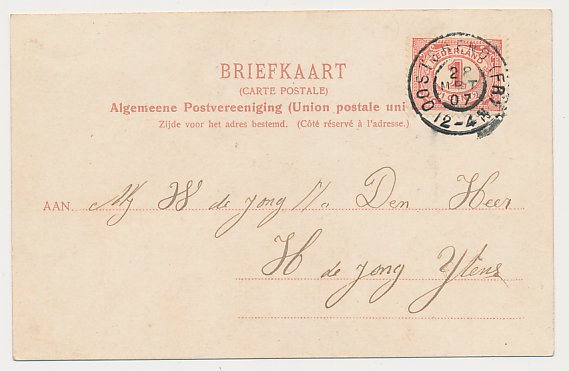 NEDERLAND
1
OOSTEREND (FR)
MRT
07
12-4N
BRIEFKAART
(CARTE POSTALE)
Algemeene Postvereeniging (Union postale uni
Zijde voor het adres bestemd. (Côté réservé à l'adresse.)
AAN Mej W de Jong p/a Den Heer
H de Jong Ytens